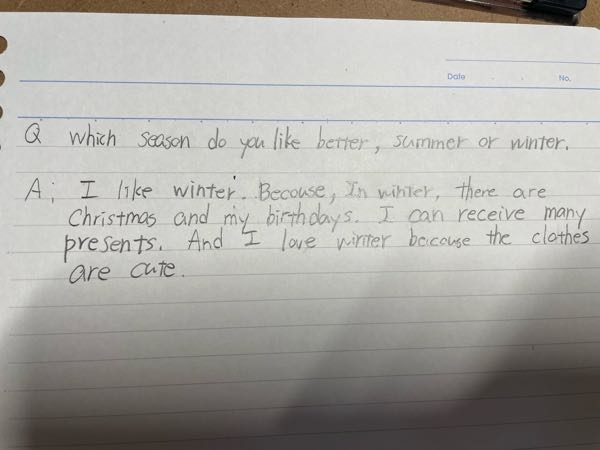 Date . . No.
Q which season do you like better, summer or winter.
A; I like winter. Becouse, In winter, there are
Christmas and my birthdays. I can receive many
presents. And I love winter becouse the clothes
are cute.